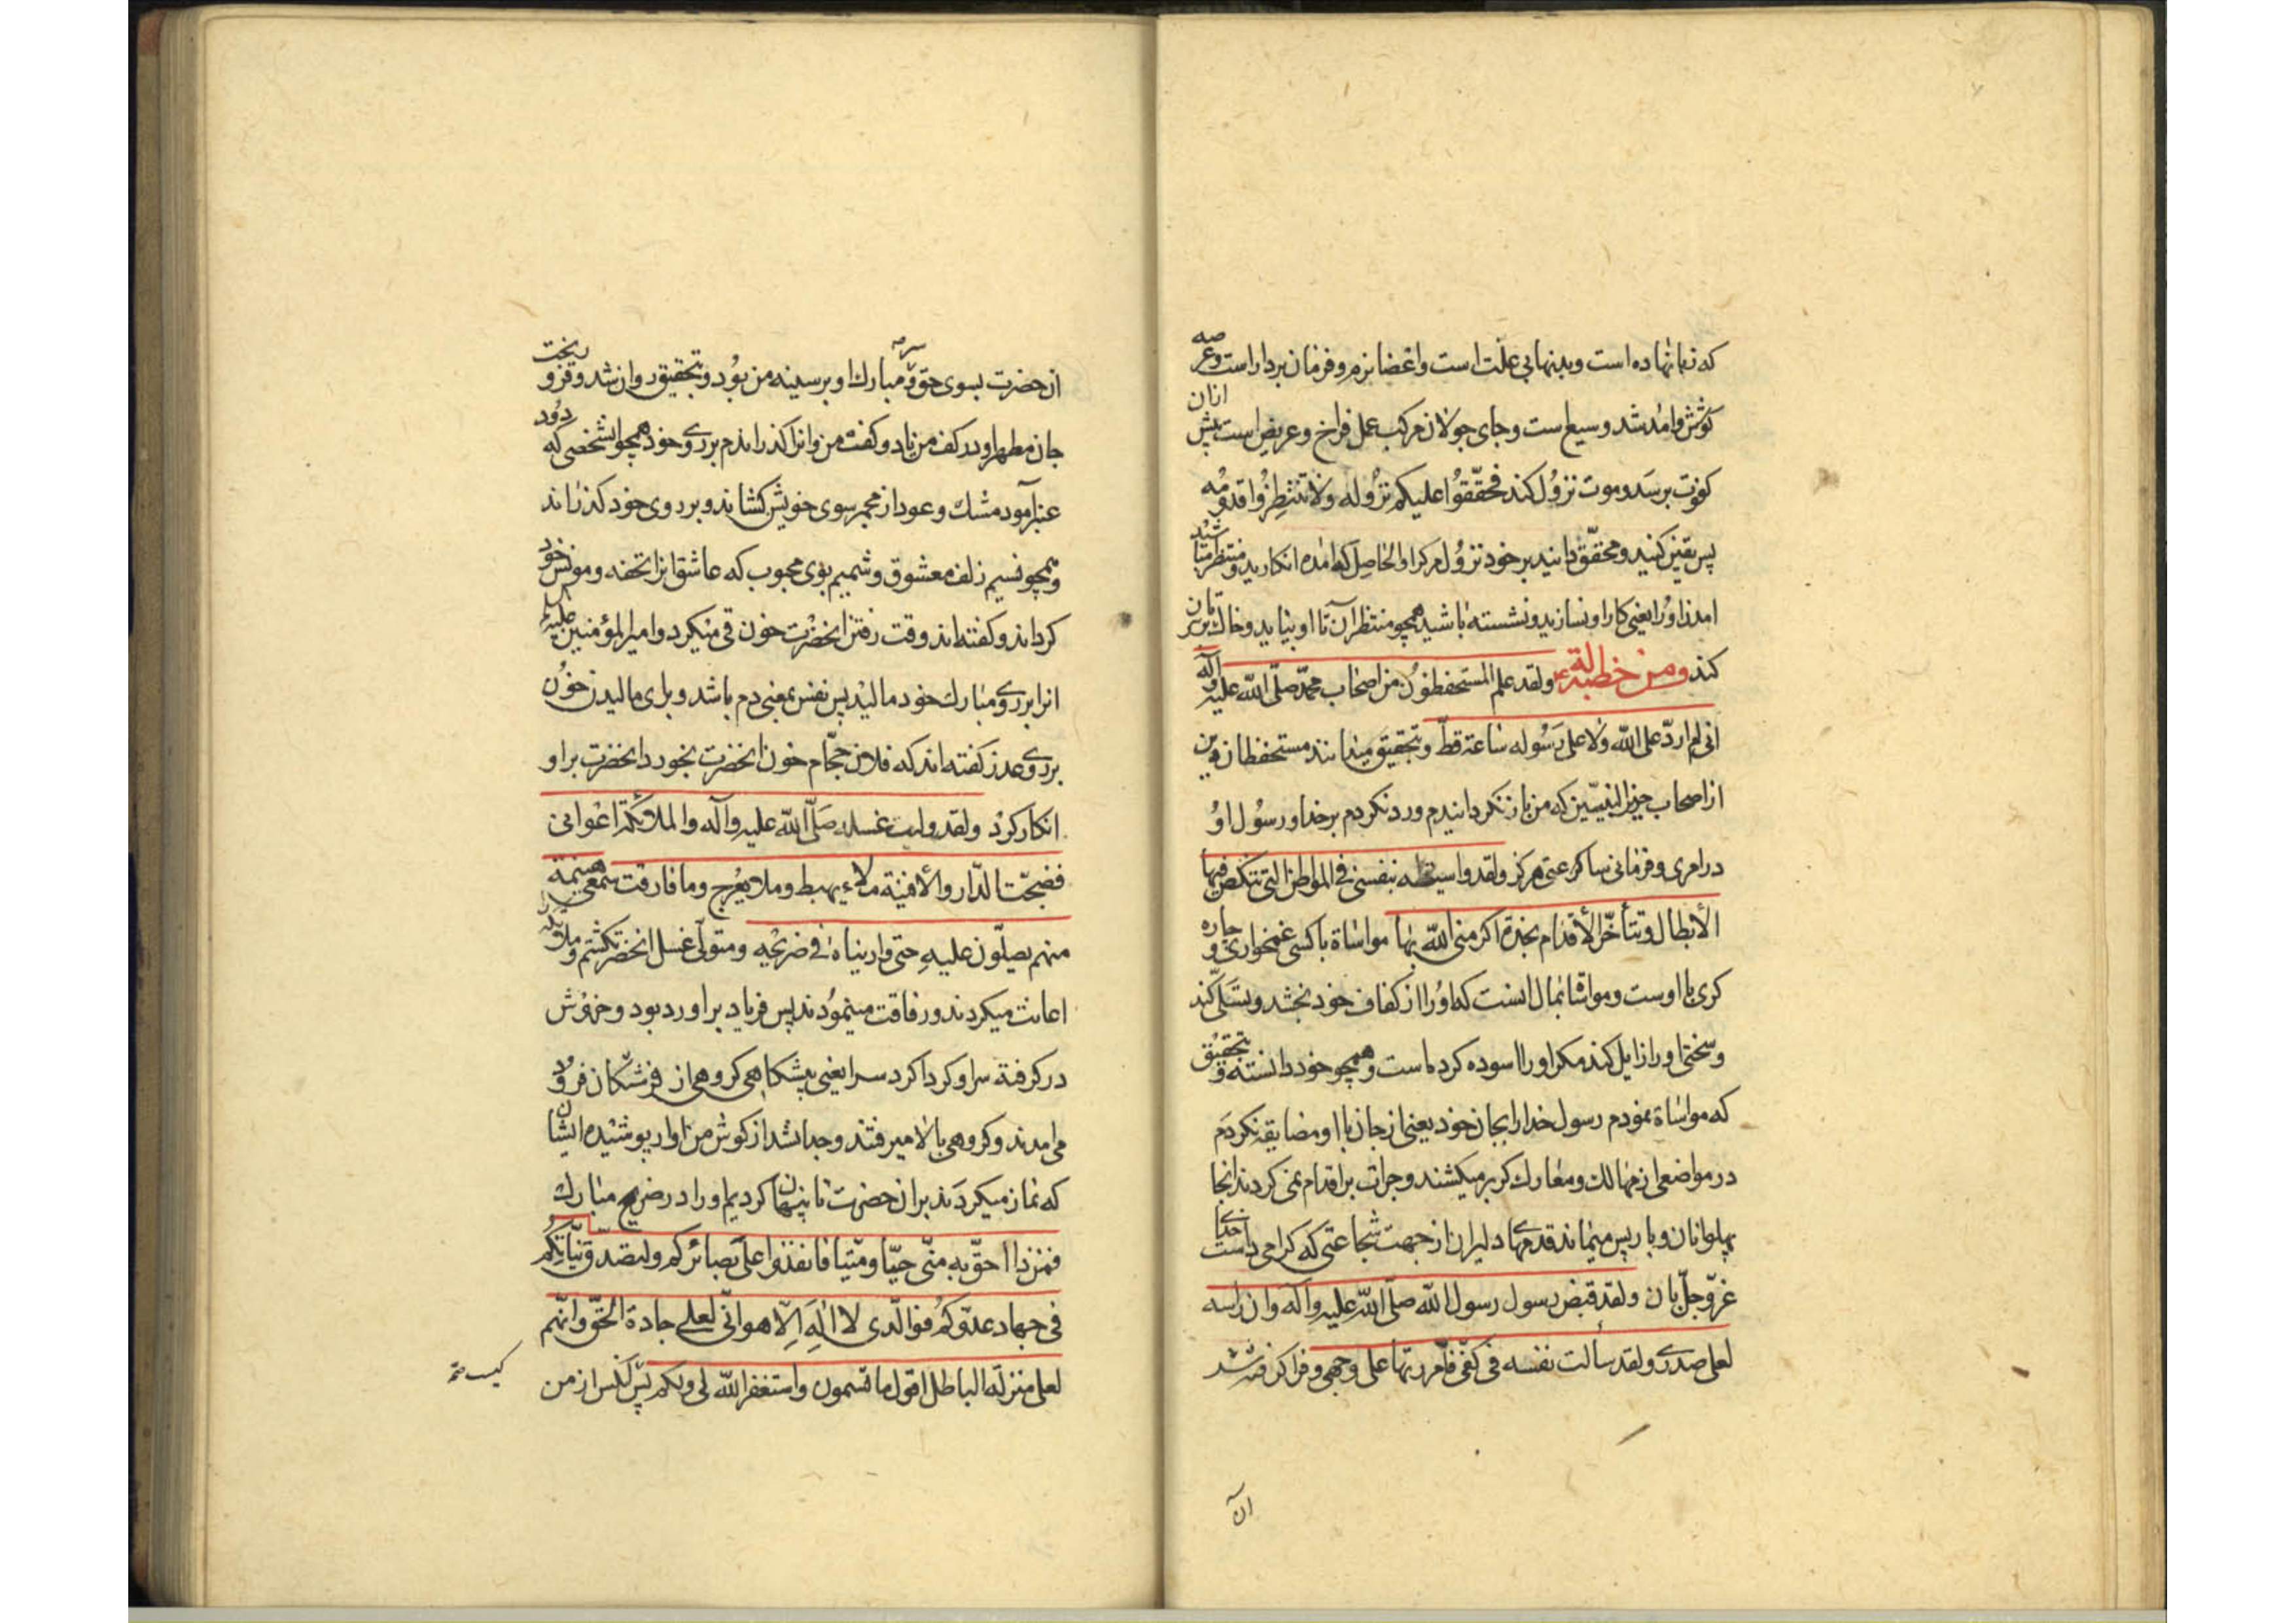 که زبانها ده است و بدنها بی علّت است و اعضا نرم و فرمان بردار است و عرصه
کوشش و امد شد وسیع است و جای جولان مرکب عمل فراخ و عریض است پیش ازان
که فوت برسد و موت نزول کند فحقّقوا علیکم نزوله ولا تنتظروا قدومه
پس یقین کنید و محقّق دانید بر خود نزول مرک را و الحاصل که امده انکارید و منتظر مباشید
امدن او را یعنی کار او نسازید و نشسته باشید همچو منتظران تا او بیاید و خاک بر سرتان
کند ومن خطبة له ولقد علم المستحفظون من اصحاب محمّد صلّی اللّه علیه وآله
انی لم اردّ علی اللّه ولا علی رسوله ساعة قطّ و بتحقیق میدانند مستحفظان دین
از اصحاب خیر النبیّین که من باز نکردانیدم و رد نکردم بر خدا و رسول او
در امری و فرمانی ساعتی هرکز ولقد واسیته بنفسی فی المواطن التی تنکص فیها
الأبطال وتتأخّر الأقدام نجدة اکرمنی اللّه بها مواساة با کسی غمخواری و چاره
کری با اوست و مواساة بمال انست که او را از کفاف خود بخشد و تسلّی کند
و سختی او را زایل کند مکر او را اسوده کرده است و همچو خود دانسته و بتحقیق
که مواساة نمودم رسول خدا را بجان خود یعنی از جان با او مضایقه نکردم
در مواضعی از مهالک و معارک که بر میکشند و جرات بر اقدام نمی کردند انجا
پهلوانان و باز پس میماند قدمهای دلیران از جهت شجاعتی که کرامی داشت خدای
عزّ وجلّ بان ولقد قبض رسول رسول اللّه صلّی اللّه علیه وآله وان راسه
لعلی صدری ولقد سالت نفسه فی کفّی فأمررتها علی وجهی و فرا کرفته شد
ان
ان حضرت بسوی حق و سر مبارک او بر سینه من بود و بتحقیق روان شد و فرو ریخت
جان مطهر او در کف من باد و کفت من و انرا کذراندم بر روی خود همچو انشخصی که دود
عنبر آمود مشک و عود از مجمر سوی خویش کشاند و بر روی خود کذراند
و همچو نسیم زلف معشوق و شمیم بوی محبوب که عاشق انرا تحفه و مونس خود
کرداند و کفته اند وقت رفتن انحضرت خون قی میکرد و امیرالمؤمنین علیه السلم
انرا بر روی مبارک خود مالید پس نفس بمعنی دم باشد و برای مالیدن خون
بر روی عذر کفته اند که فلان حجّام خون انحضرت بخورد و انحضرت بر او
انکار نکرد ولقد ولیت غسله صلّی اللّه علیه وآله والملائکة اعوانی
فضجّت الدّار والأفنیة ملاء یهبط وملا یعرج وما فارقت سمعی هینمة
منهم یصلّون علیه حتی واریناه فی ضریحه و متولّی غسل انحضرت کشتم و ملائکه
اعانت میکردند و رفاقت مینمودند پس فریاد براورد بود و خروش
در کرفته سرا و کرداکرد سرا یعنی پیشکاهی کروهی از فرشتکان فرود
می امدند و کروهی بالا میرفتند و جدا نشد از کوش من اواز پوشیده ایشان
که نماز میکردند بران حضرت تا پنهان کردیم او را در ضریح مبارک
فمن ذا احقّ به منّی حیّا ومیّتا فانفذوا علی بصائرکم ولتصدق نیّاتکم
فی جهاد عدوّکم فوالّذی لا اله الّا هو انّی لعلی جادة الحقّ وانّهم
لعلی منزلة الباطل اقول ما تسمعون واستغفر اللّه لی ولکم پس کیس از من
کیست